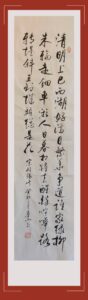 清明上巳西湖好滿目繁華争道誰家綠柳
朱輪走鈿車游人日暮相將去醒醉喧嘩路
轉堤斜直到城頭總是花